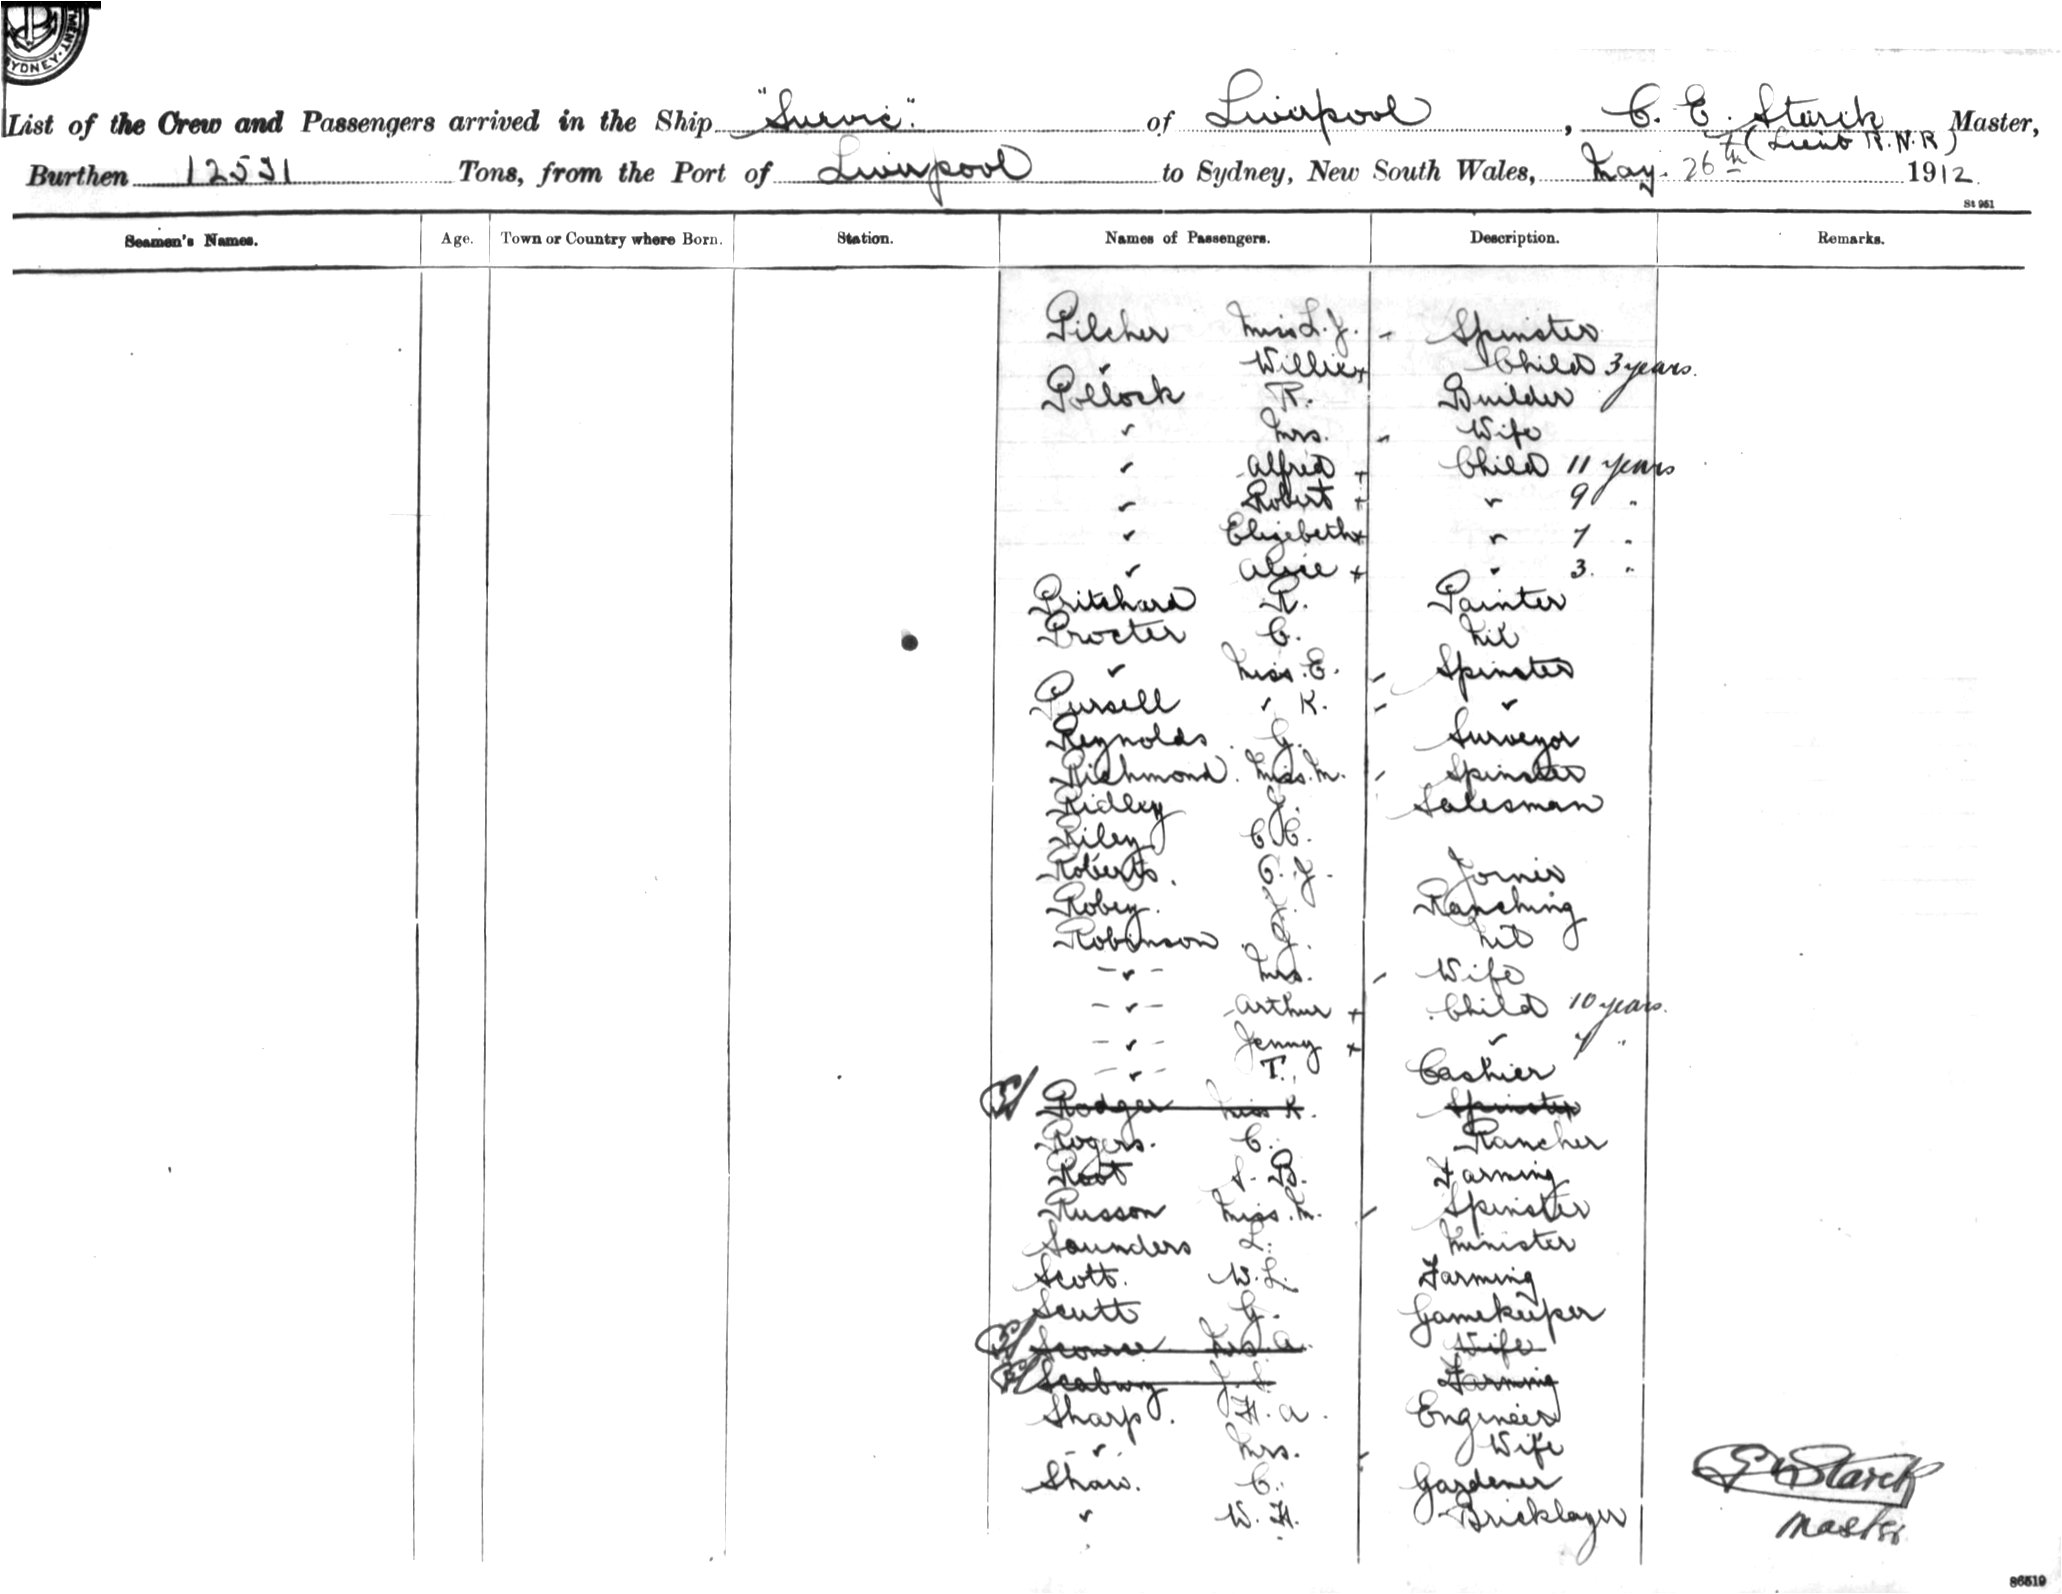 MENT. SYDNEY.
List of the Crew and Passengers arrived in the Ship "Suevic" of Liverpool, C. E. Starck Master,
(Lieut R.N.R)
Burthen 12531 Tons, from the Port of Liverpool to Sydney, New South Wales, May 26th 1912
St 951
Seamen's Names. Age. Town or Country where Born. Station. Names of Passengers. Description. Remarks.
Pilcher Miss L. J. Spinster
" Willie + Child 3 years.
Pollock R. Builder
" Mrs. Wife
" Alfred + Child 11 years
" Robert + " 9 "
" Elizabeth + " 7 "
" Alice + " 3. "
Pritchard R. Painter
Procter C. Nil
" Miss. E. Spinster
Pursell " K. "
Reynolds. G. Surveyor
Richmond. Miss. M. Spinster
Ridley J. Salesman
Riley C. C.
Roberts. C. J.
Robey. J. Ranching
Robinson J. Nil
" Mrs. Wife
" Arthur + Child 10 years.
" Jenny + " 7 "
" T. Cashier
Rodger Miss K. Spinster
Rogers. C. Rancher
Root S. B. Farming
Russon Miss. M. Spinster
Saunders L. Minister
Scott. W. L. Farming
Scutt G. Gamekeeper
Scource Mrs. A. Wife
Seabury J. S. Farming
Sharp. H. A. Engineer
" Mrs. Wife
Shaw. C. Gardener
" W. H. Bricklayer
Starck
Master
86519